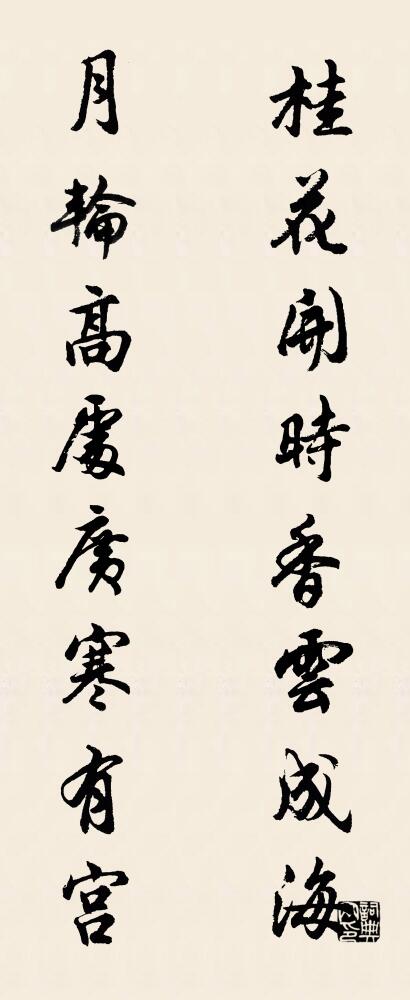 桂花開時香雲成海
月輪高處廣寒有宮